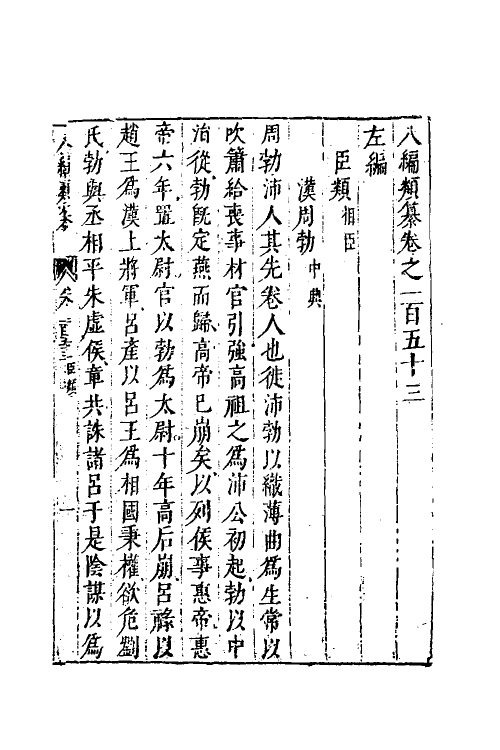 八編類纂卷之一百五十三
左編
臣類相臣
漢周勃中典
周勃沛人其先卷人也徙沛勃以織薄曲爲生常以
吹簫給喪事材官引強高祖之爲沛公初起勃以中
涓從勃旣定燕而歸高帝已崩矣以列侯事惠帝惠
帝六年置太尉官以勃爲太尉十年高后崩呂祿以
趙王爲漢上將軍呂產以呂王爲相國秉權欲危劉
氏勃與丞相平朱虛侯章共誅諸呂于是陰謀以爲
八編類纂 卷一百五十三 臣類 一